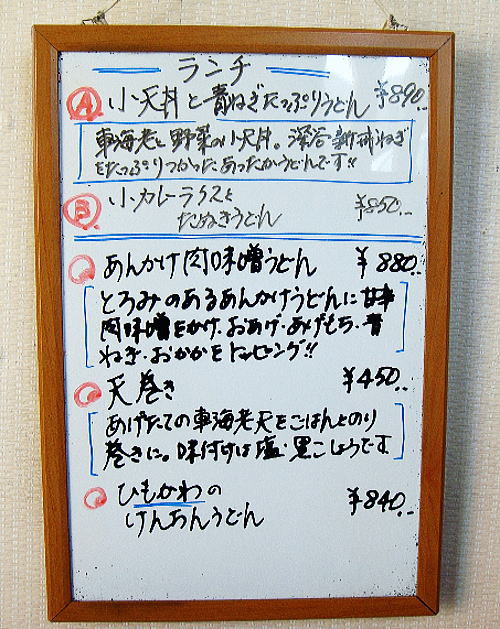 ランチ
Ⓐ 小天丼と青ねぎたっぷりうどん ¥890..
車海老と野菜の小天丼。深谷新井ねぎ
をたっぷりつかった、あったかうどんです!!
Ⓑ 小カレーライスと
たぬきうどん ¥850..
あんかけ肉味噌うどん ¥880..
とろみのあるあんかけうどんに
肉味噌をかけ、おあげ・あげもち・青
ねぎ・おかかをトッピング!!
天巻き ¥450..
あげたての車海老天をごはんとのり
巻きに。味付けは塩・黒こしょうです
ひもかわの ¥840..
けんちんうどん